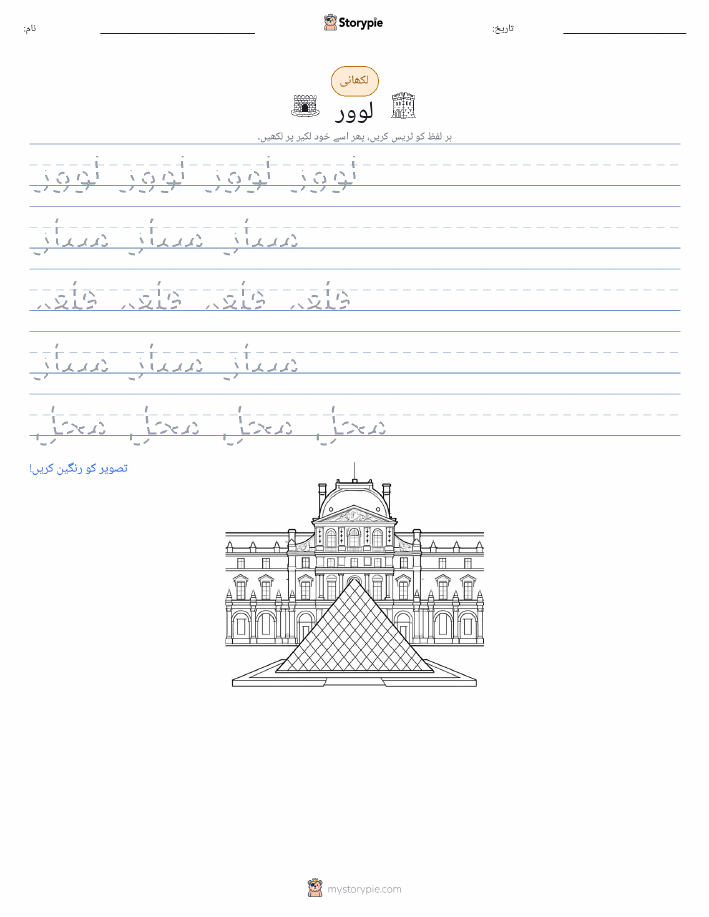 نام:
تاریخ:
Storypie
لکھائی
لوور
ہر لفظ کو ٹریس کریں، پھر اسے خود لکیر پر لکھیں۔
لوور لوور لوور لوور
قلعہ قلعہ قلعہ قلعہ
محل محل محل محل
تصویر کو رنگین کریں!
mystorypie.com